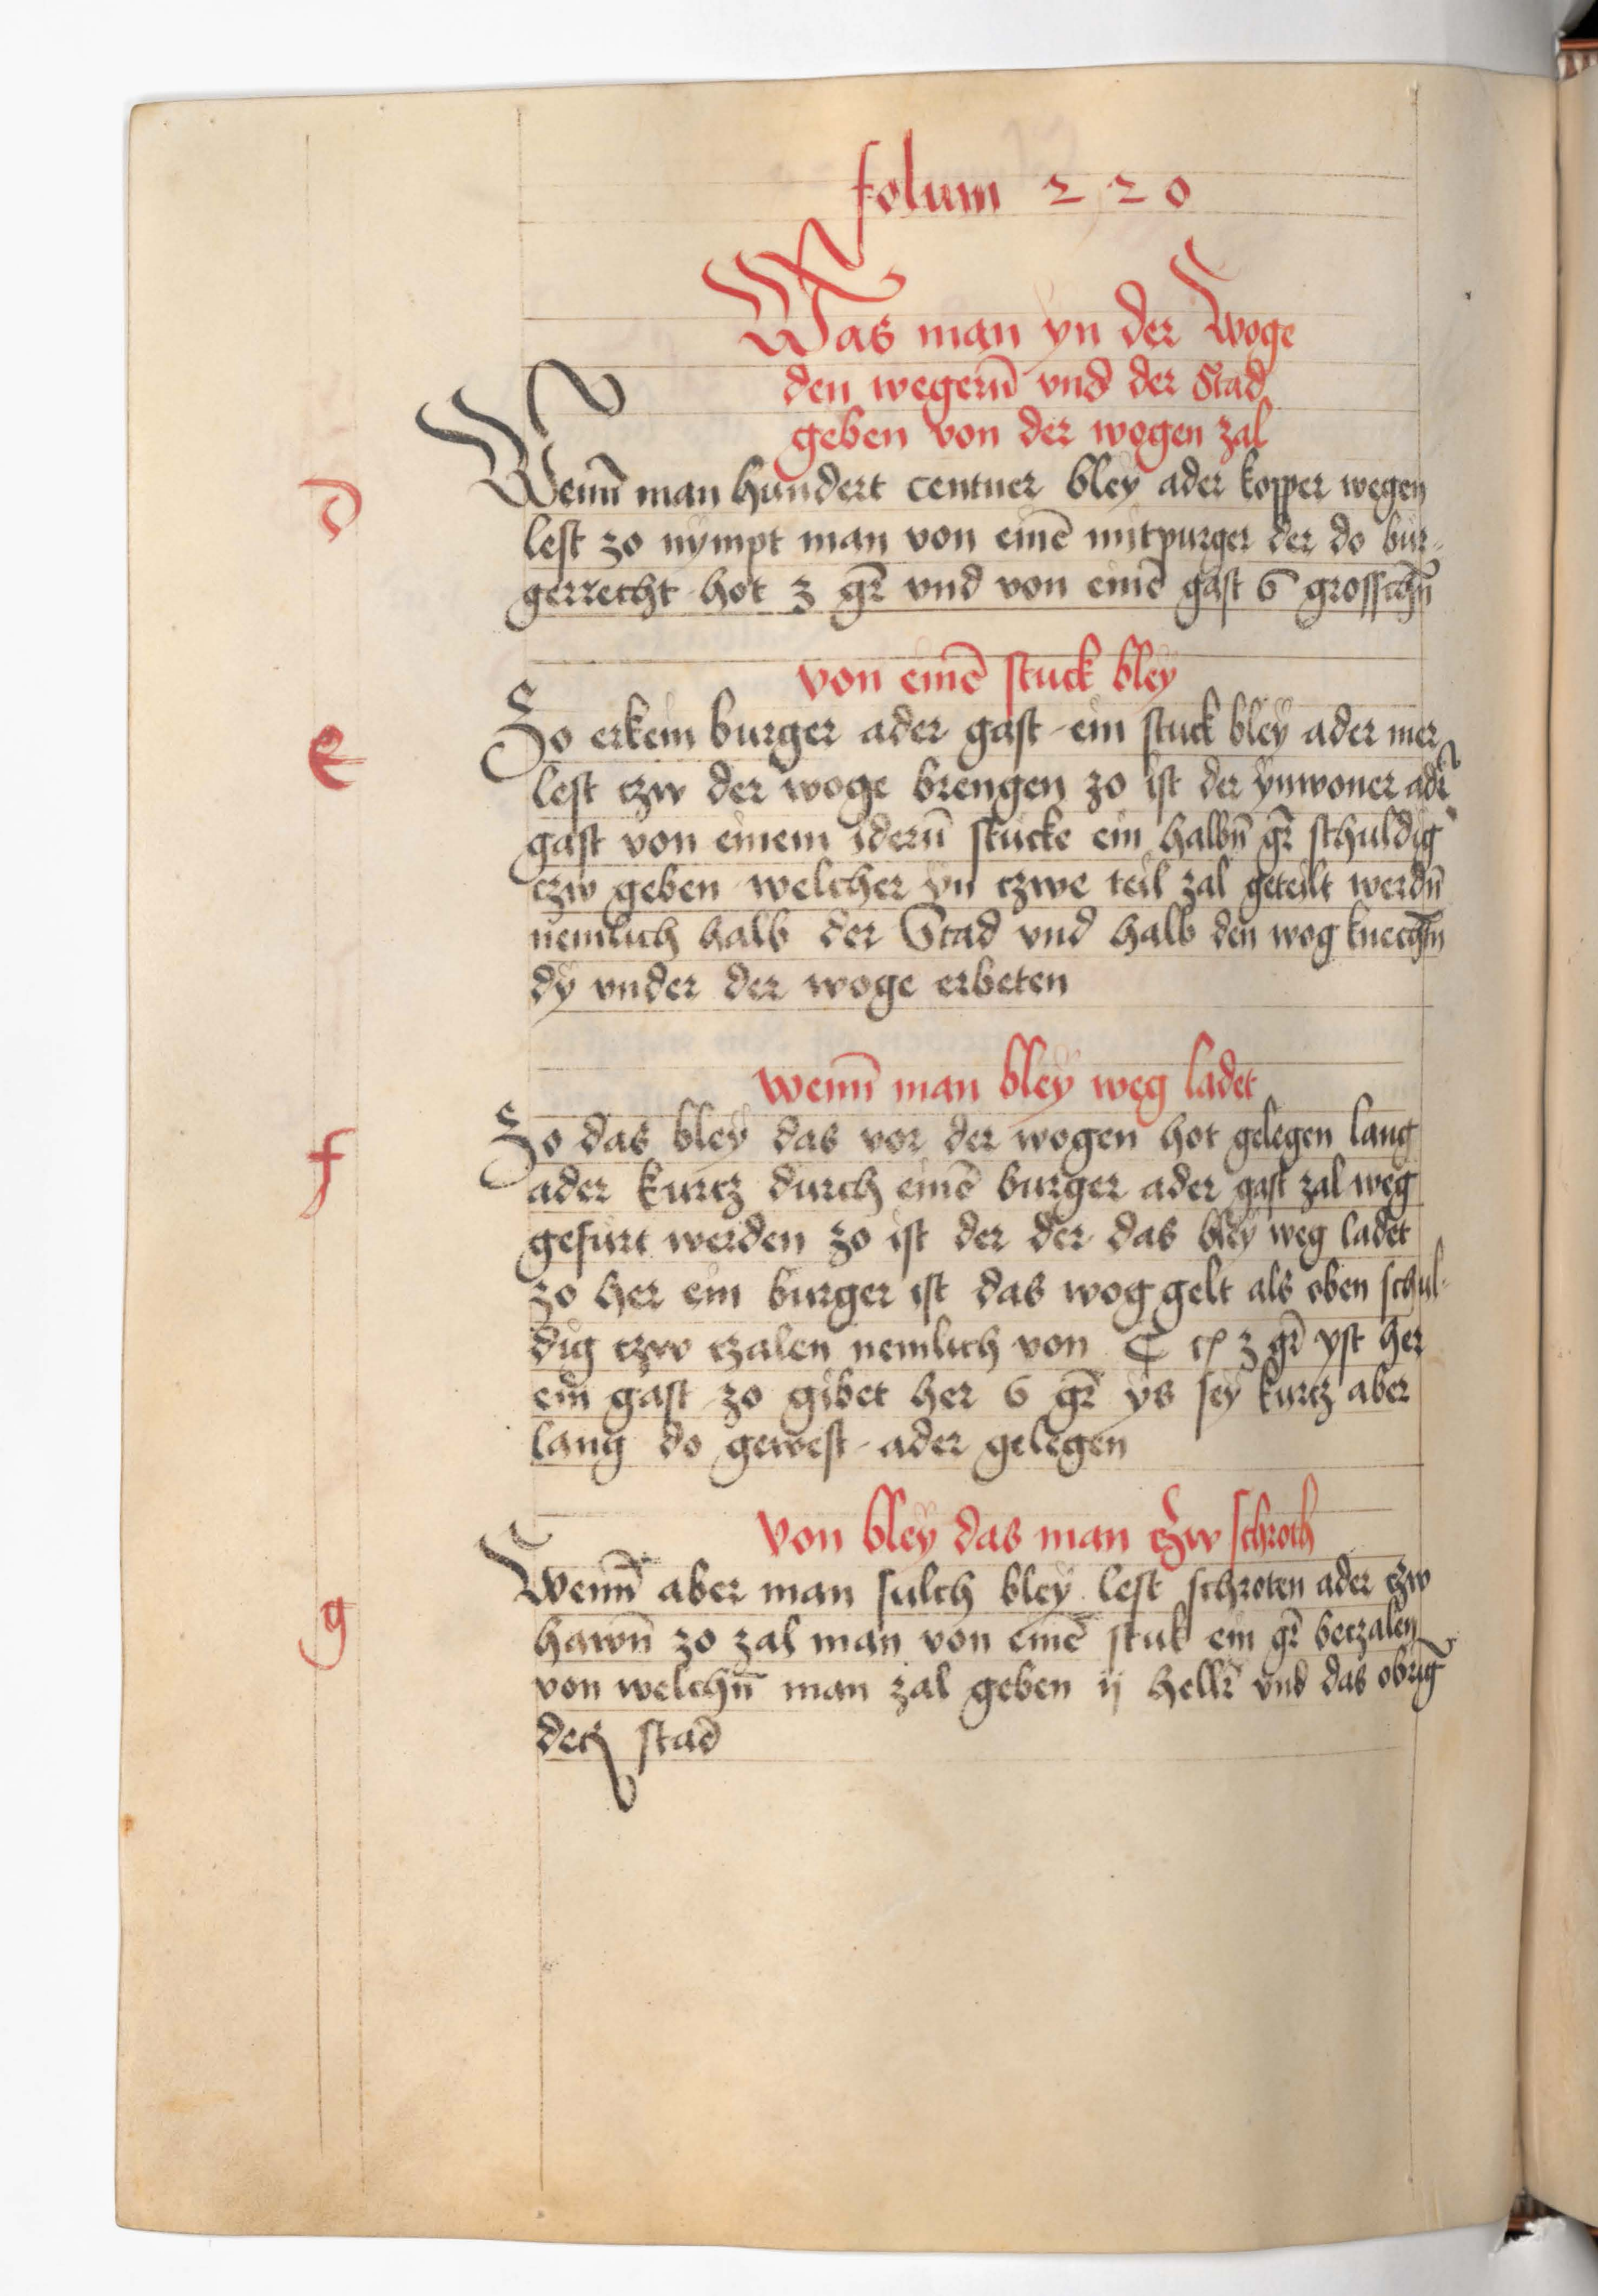 folum 220
Was man yn der woge
den wegerñ vnd der Stad
geben von der wogen zal
d
Wenñ man hundert centner bley ader kopper wegen
lest zo nympt man von einē mitpurger der do bur-
gerrecht hot 3 gr̄ vnd von einē gast 6 grosschñ
von einē stuck bley
e
So erkein burger ader gast ein stuck bley ader mer
lest czw der woge brengen zo ist der ynwoner adr̄
gast von einem iderñ stucke ein halbñ gr̄ schuldig
czw geben welcher yn czwe teil zal geteilt werdñ
nemlich halb der Stad vnd halb den wog knechtñ
dy vnder der woge erbeten
wenñ man bley weg ladet
f
So das bley das vor der wogen hot gelegen lang
ader kurcz durch einē burger ader gast zal weg
gefurt werden zo ist der der das bley weg ladet
zo her ein burger ist das wog gelt als oben schul-
dig czw czalen nemlich von C cz 3 gr̄ yst her
ein gast zo gibet her 6 gr̄ ys sey kurcz aber
lang do gewest ader gelegen
von bley das man czw schroth
g
Wenñ aber man sulch bley lest schroten ader czw
hawñ zo zal man von einē stuk ein gr̄ beczalen
von welchñ man zal geben ij hellr̄ vnd das obrig
der stad